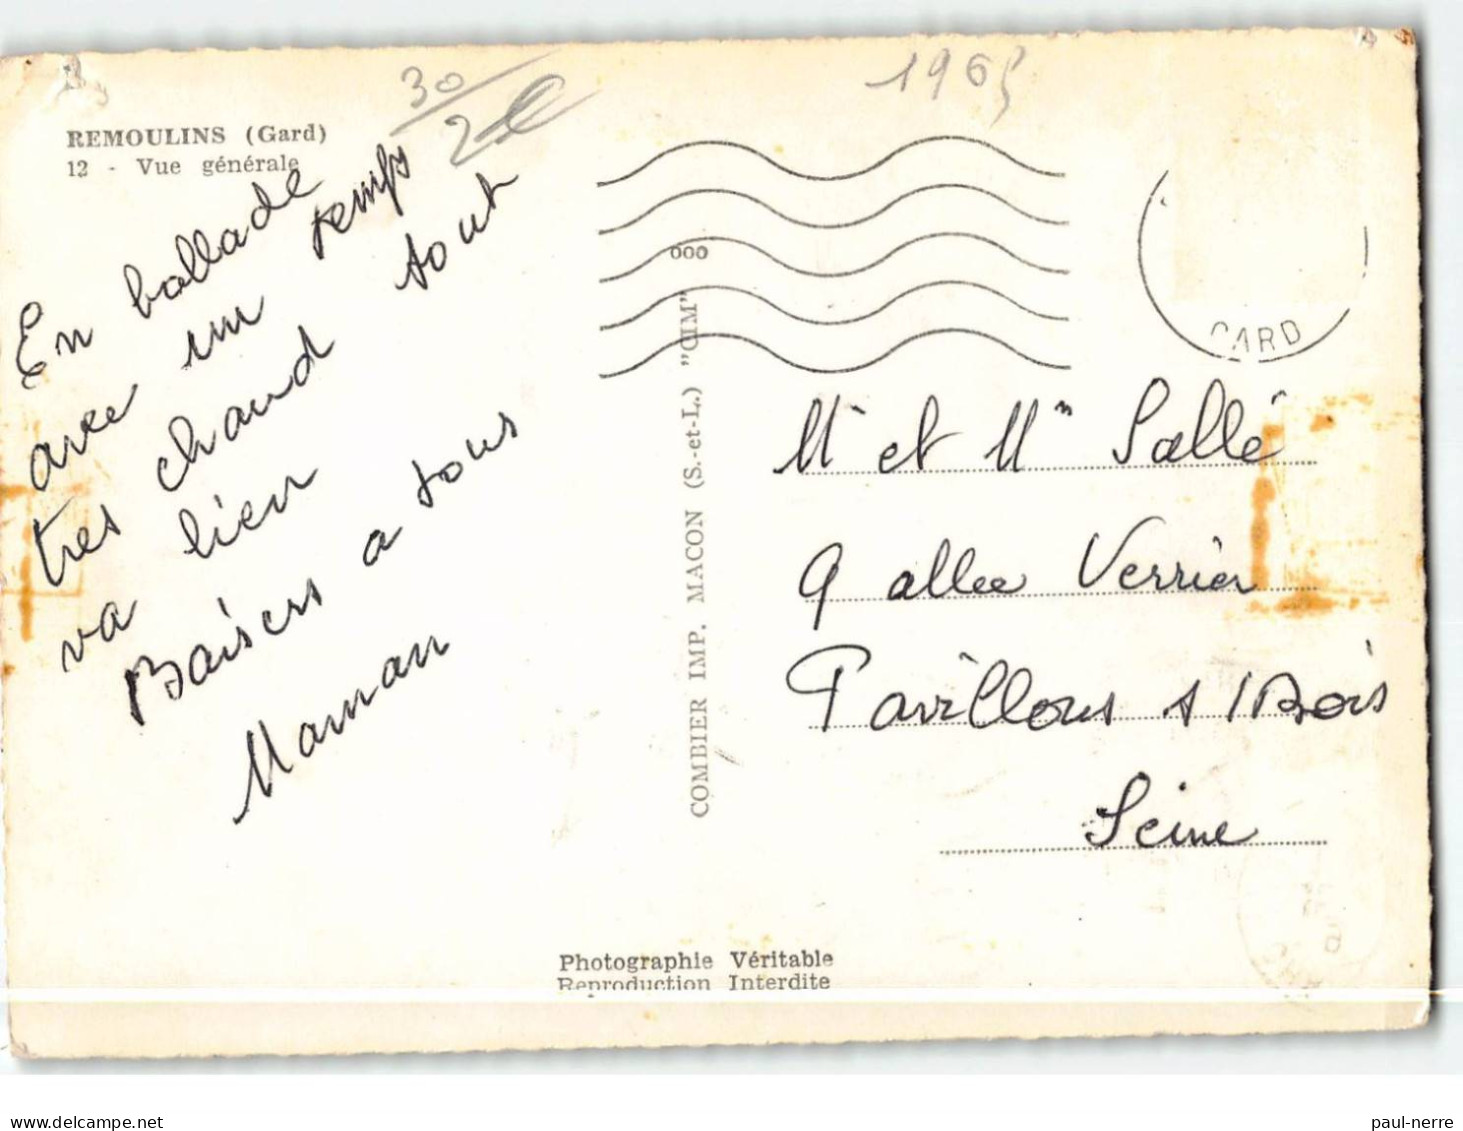 1965
30
2€
REMOULINS (Gard)
12 - Vue générale
En ballade
avec un temps
tres chaud tout
va bien
Baisers a tous
Maman
ooo
COMBIER IMP. MACON (S.-et-L.) "CIM"
GARD
Mr et Mm Sallé
9 allee Verrier
Pavillons s/Bois
Seine
Photographie Véritable
Reproduction Interdite
paul-nerre